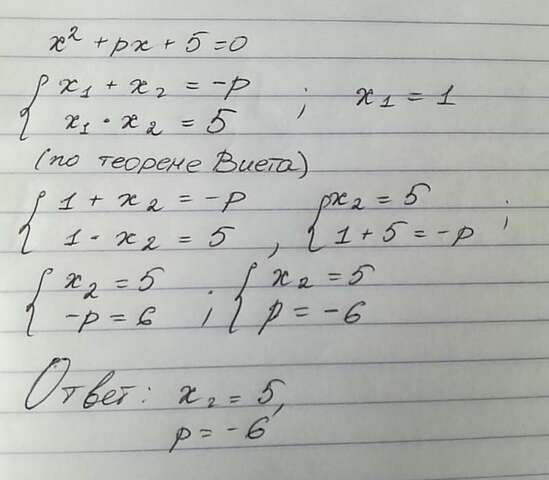 x² + px + 5 = 0
{ x₁ + x₂ = -p
x₁ · x₂ = 5 ; x₁ = 1
(по теореме Виета)
{ 1 + x₂ = -p
1 · x₂ = 5 , { px₂ = 5
1 + 5 = -p ;
{ x₂ = 5
-p = 6 ; { x₂ = 5
p = -6
Ответ: x₂ = 5,
p = -6